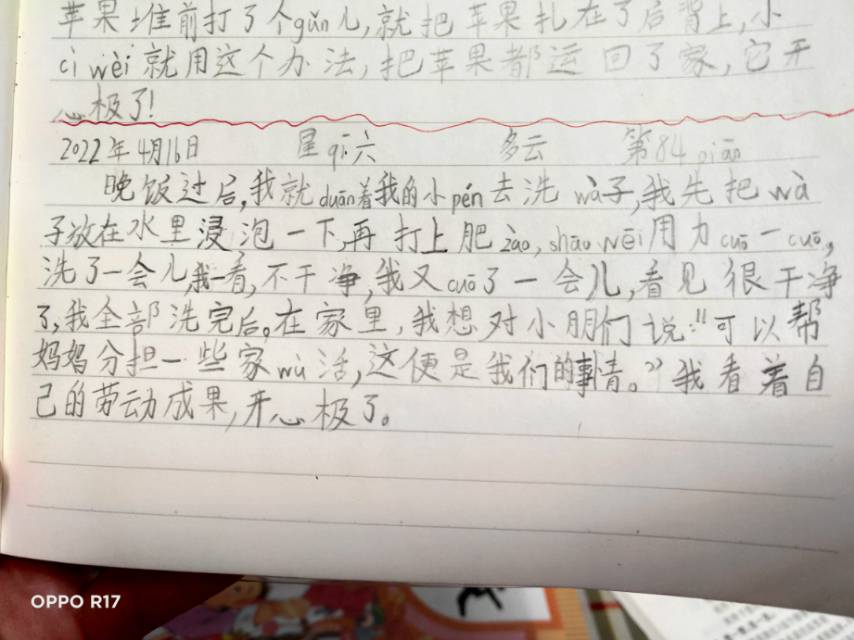 苹果堆前打了个gǔn儿,就把苹果扎在了后背上,小
cì wèi就用这个办法,把苹果都运回了家,它开
心极了!
2022年4月16日 星qī六 多云 第84piān
晚饭过后,我就duān着我的小pén去洗wà子,我先把wà
子放在水里浸泡一下,再打上肥zào,shāo wēi用力cuō一cuō,
洗了一会儿,我一看,不干净,我又cuō了一会儿,看见很干净
了,我全部洗完后。在家里,我想对小朋们说:"可以帮
妈妈分担一些家wù活,这便是我们的事情。"我看着自
己的劳动成果,开心极了。
OPPO R17